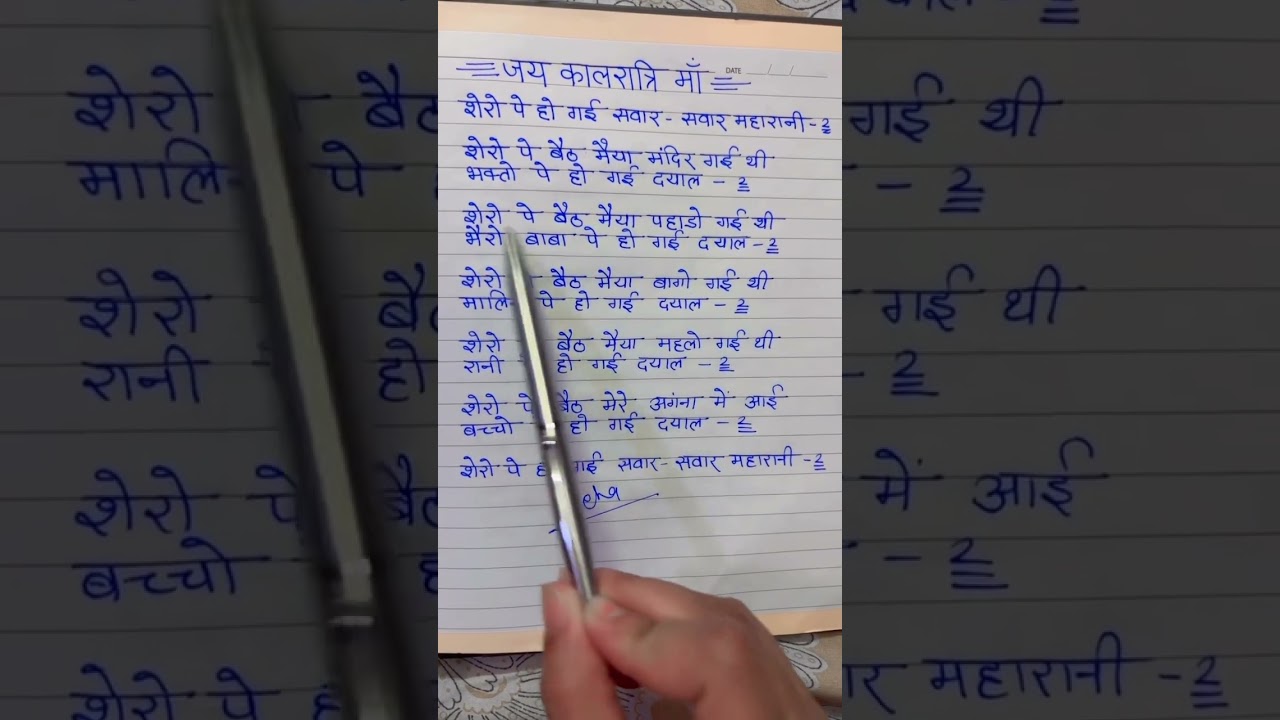 जय कालरात्रि माँ
DATE
शेरो पे हो गई सवार - सवार महारानी - 2
शेरो पे बैठ मैया मंदिर गई थी
भक्तो पे हो गई दयाल - 2
शेरो पे बैठ मैया पहाडो गई थी
भैरो बाबा पे हो गई दयाल - 2
शेरो बैठ मैया बागो गई थी
पे हो गई दयाल - 2
शेरो बैठ मैया महलो गई थी
रानी हो गई दयाल - 2
शेरो पे बैठ मेरे अगंना में आई
बच्चो हो गई दयाल - 2
शेरो पे गई सवार - सवार महारानी - 2